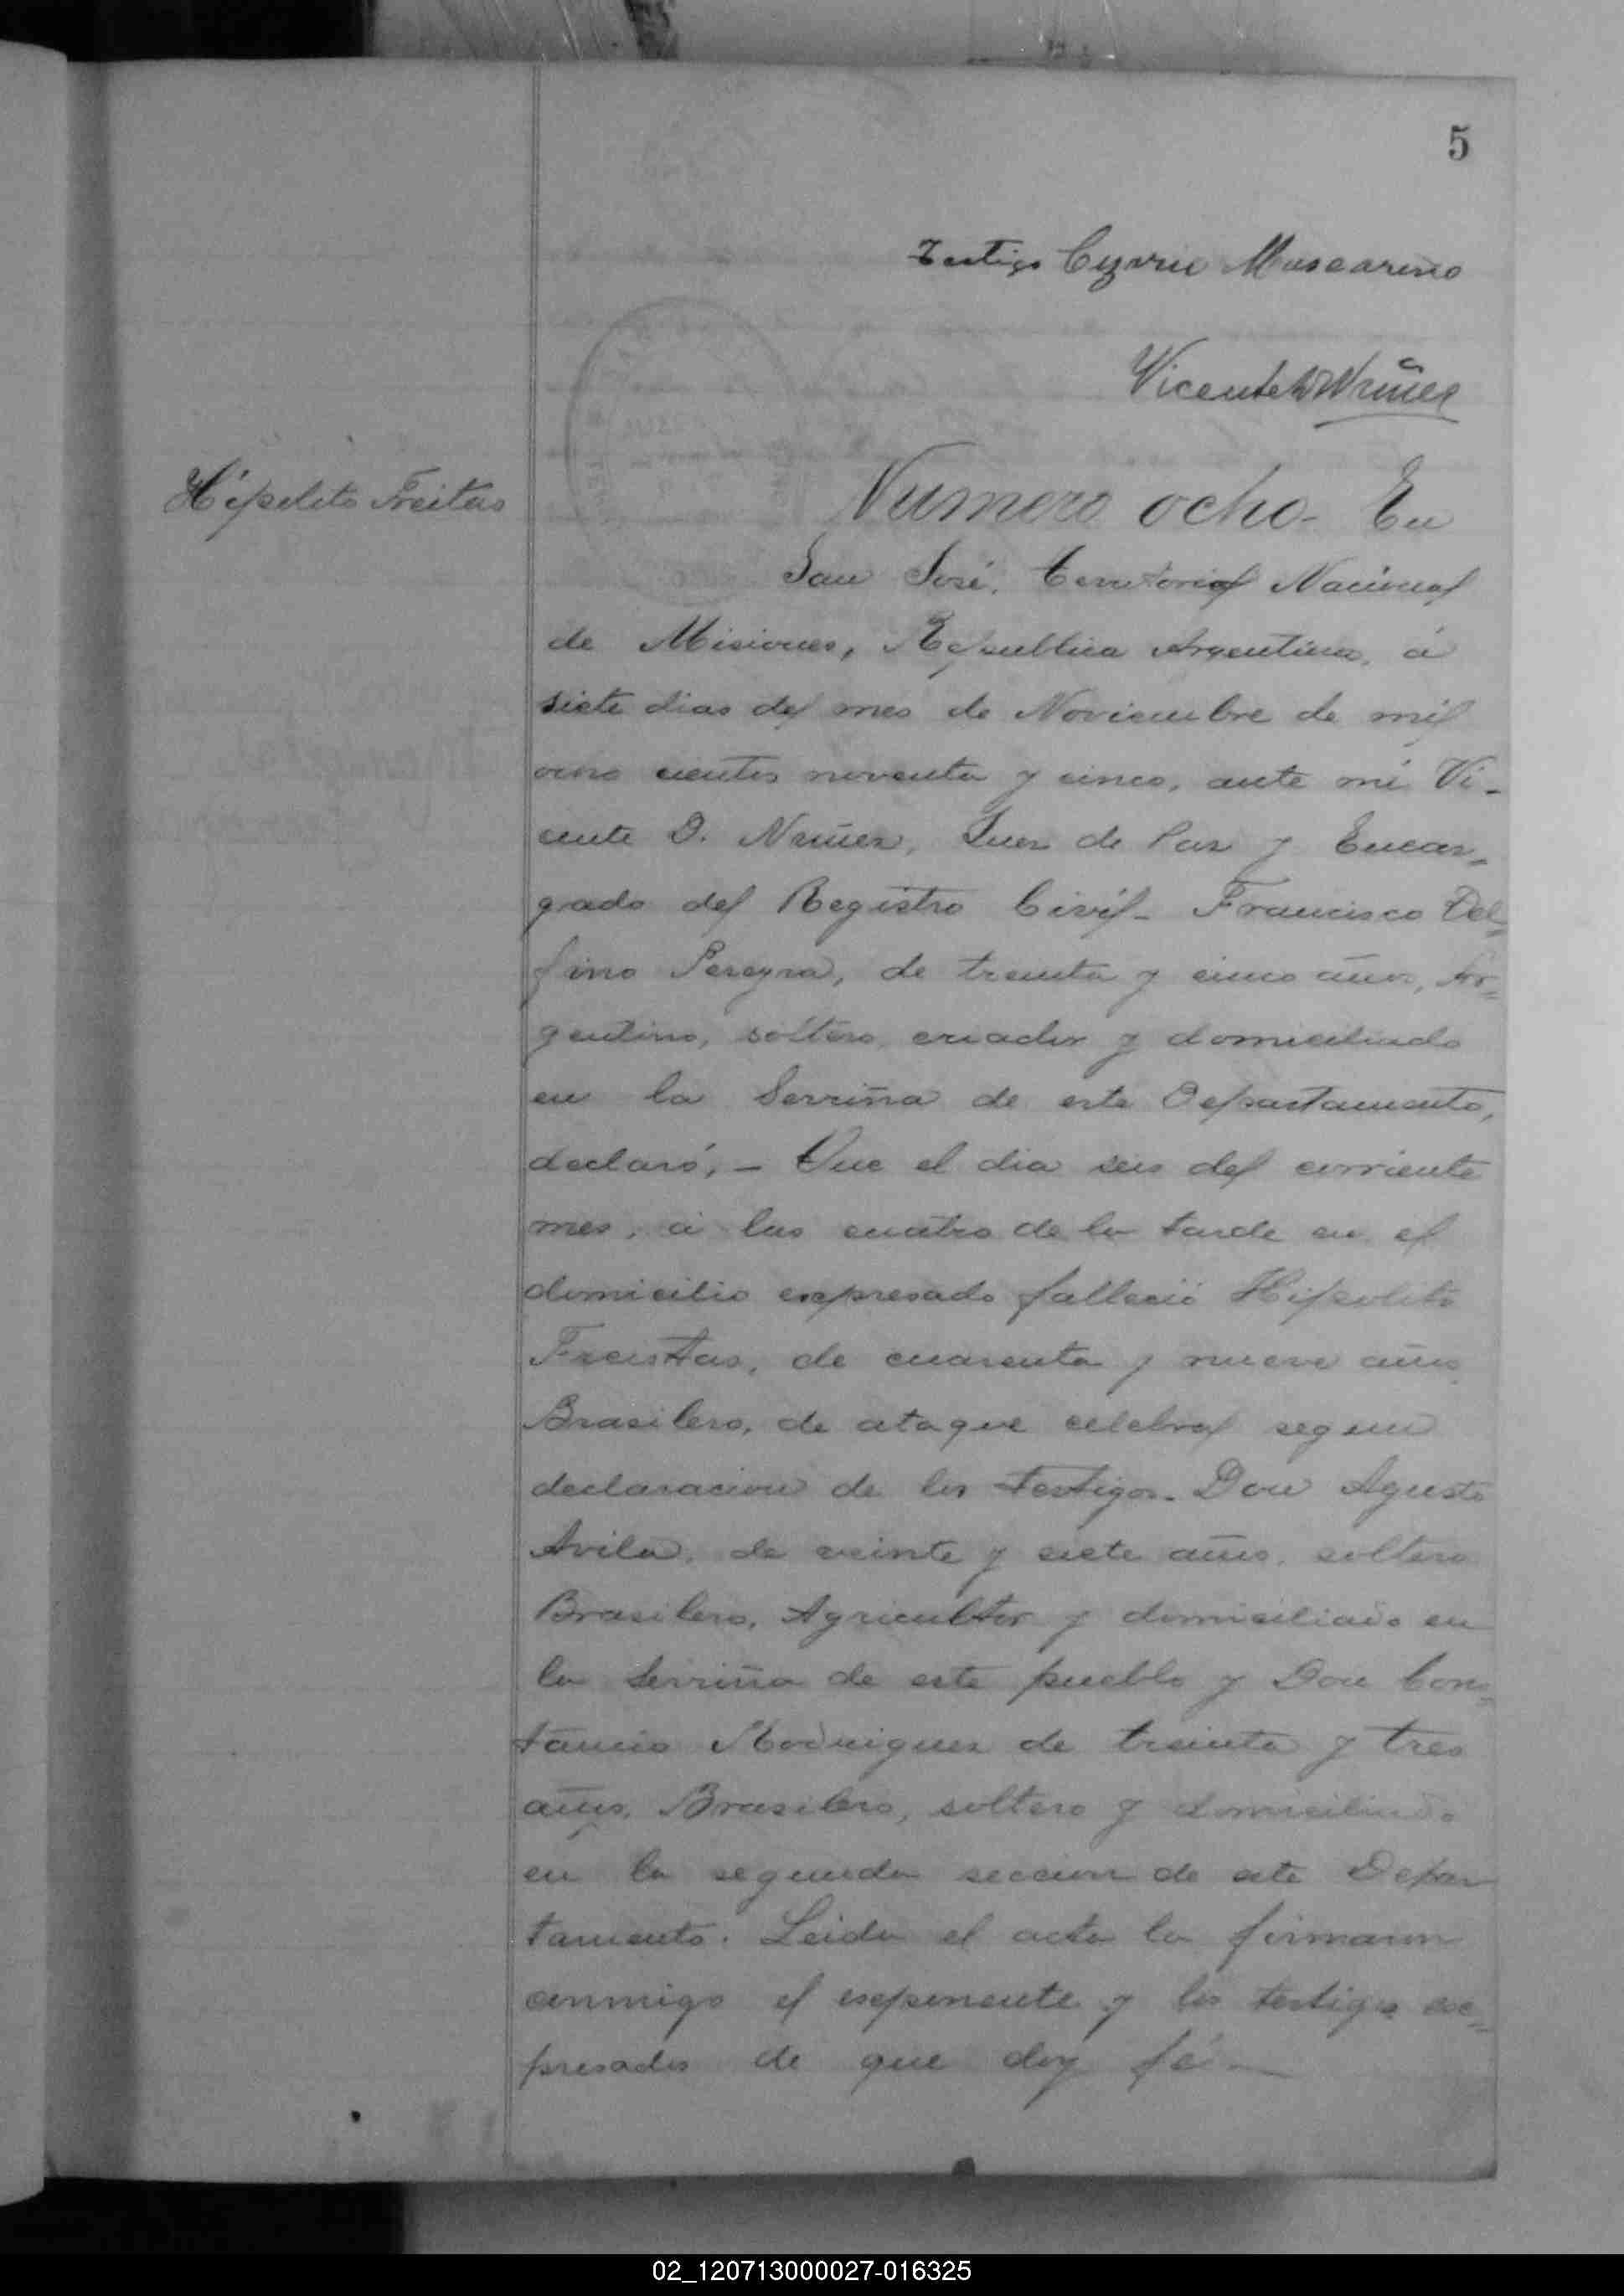 5
Testigo Mascareño
Vicente D Nuñez
Hipolito Freitas
Numero ocho - En
San José, Territorio Nacional
de Misiones, Republica Argentina, á
siete dias del mes de Noviembre de mil
ocho cientos noventa y cinco, ante mi Vi-
cente D. Nuñez, Juez de Paz y Encar=
gado del Registro Civil - Francisco Del=
fino Pereyra, de treinta y cinco años, Ar=
gentino, soltero, criador y domiciliado
en la Serriña de este Departamento,
declaró, - Que el dia seis del corriente
mes, á las cuatro de la tarde en el
domicilio espresado falleció Hipolito
Freistas, de cuarenta y nueve años
Brasilero, de ataque celebral segun
declaracion de los testigos - Don Agusto
Avila, de veinte y siete años, soltero
Brasilero, Agricultor y domiciliado en
la Serriña de este pueblo y Don Cons=
tancio Rodriguez de treinta y tres
años, Brasilero, soltero y domiciliado
en la segunda seccion de este Depar
tamento. Leida el acta la firmaron
conmigo el esponente y los testigos es=
presados de que doy fé -
02_120713000027-016325